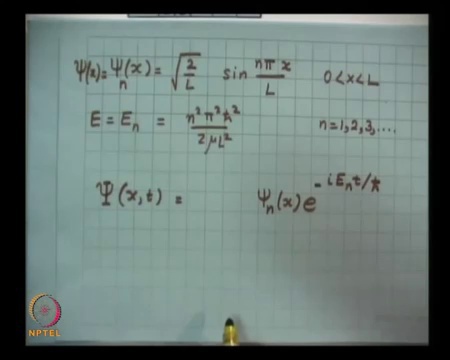 ψ(x) = ψₙ(x) = √(2/L) sin nπx/L 0 < x < L
E = Eₙ = n²π²ħ²/2μL² n = 1, 2, 3, ....
Ψ(x,t) = ψₙ(x) e^(-iEₙt/ħ)
NPTEL